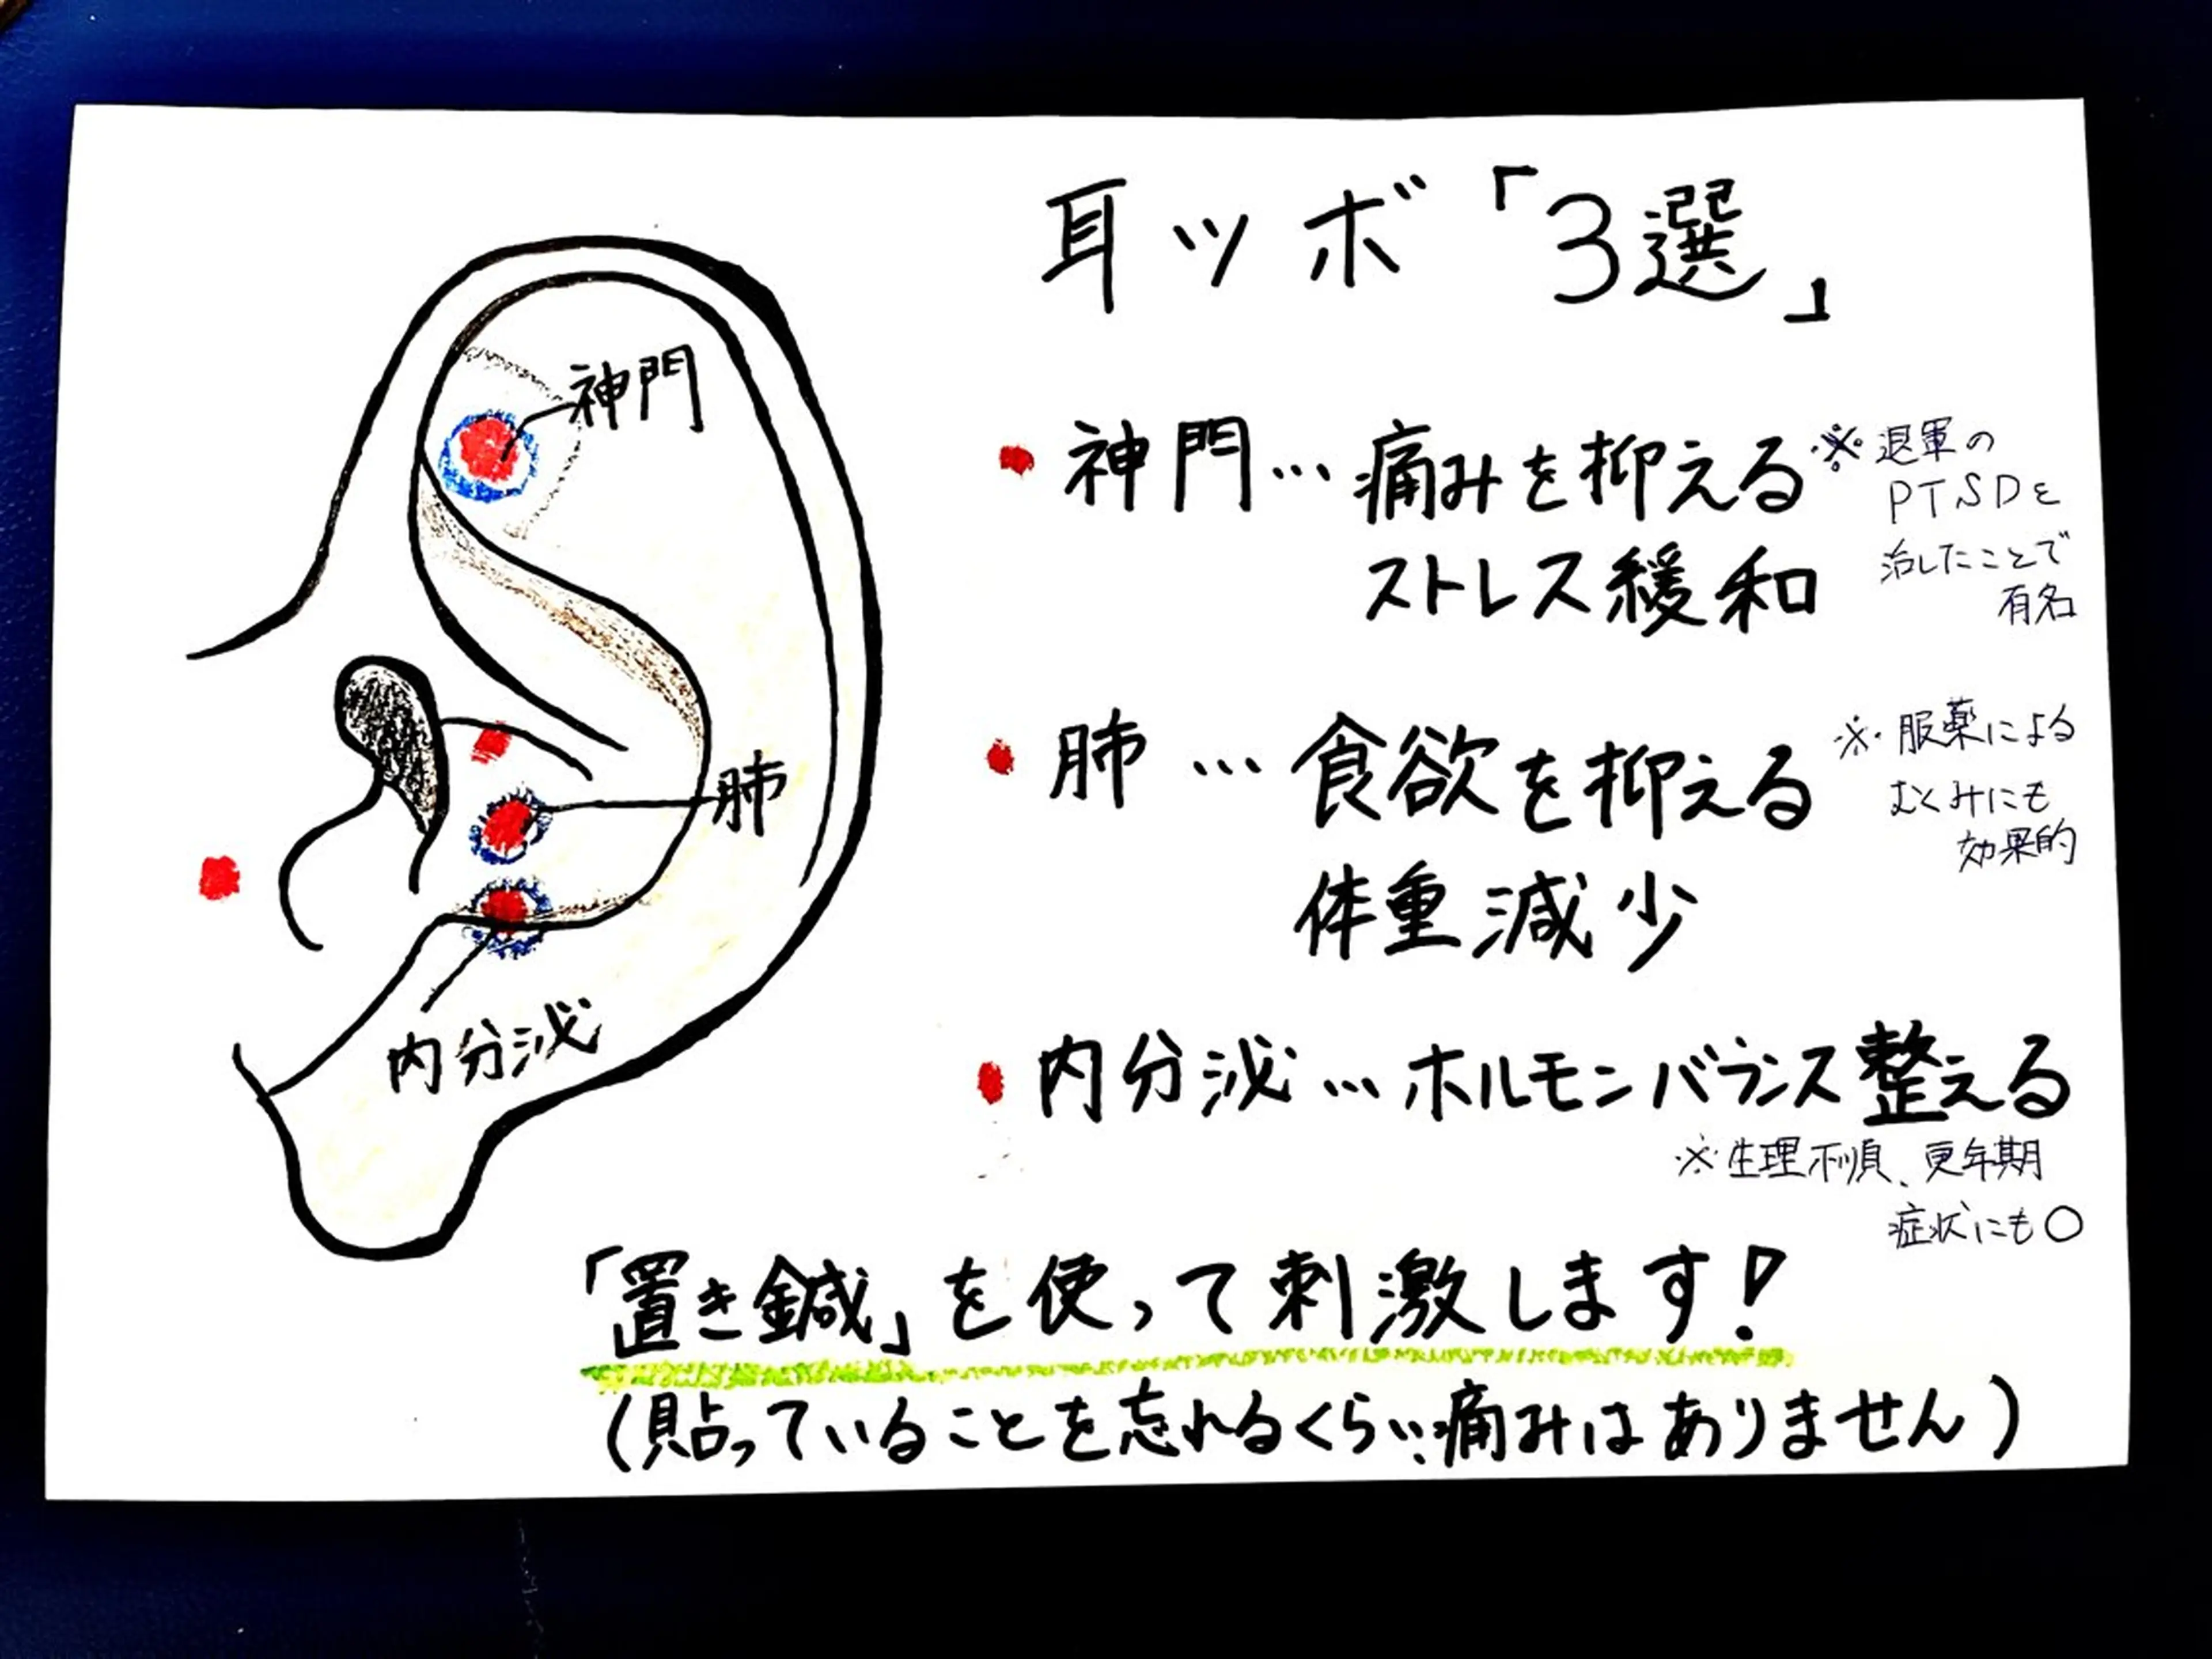 耳ツボ「3選」
神門
・神門…痛みを抑える
ストレス緩和
※退軍の
PTSDを
治したことで
有名
肺
・肺…食欲を抑える
体重減少
※服薬による
むくみにも
効果的
内分泌
・内分泌…ホルモンバランス整える
※生理不順、更年期
症状にも○
「置き鍼」を使って刺激します!
(貼っていることを忘れるくらい痛みはありません)